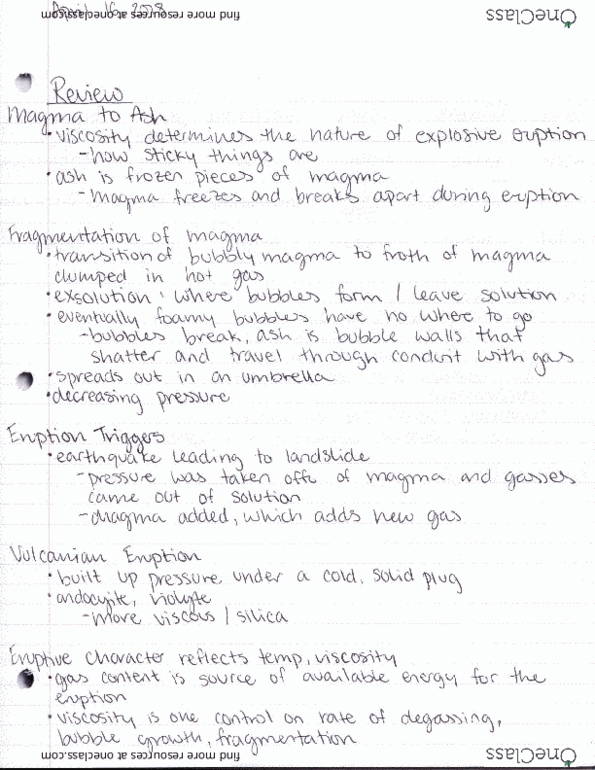 find more resources at oneclass.com
OneClass
Review
Magma to Ash
• viscosity determines the nature of explosive eruption
- how sticky things are
• ash is frozen pieces of magma
- Magma freezes and breaks apart during eruption
Fragmentation of magma
• transition of bubbly magma to froth of magma
clumped in hot gas
• exsolution: where bubbles form / leave solution
• eventually foamy bubbles have no where to go
- bubbles break, ash is bubble walls that
shatter and travel through conduit with gas
• spreads out in an umbrella
• decreasing pressure
Eruption Triggers
• earthquake leading to landslide
- pressure was taken off of magma and gasses
came out of solution
- magma added, which adds new gas
Vulcanian Eruption
• built up pressure under a cold, solid plug
- more viscous / silica
Eruptive character reflects temp, viscosity
• gas content is source of available energy for the
eruption
• viscosity is one control on rate of degassing,
bubble growth, fragmentation
find more resources at oneclass.com
OneClass